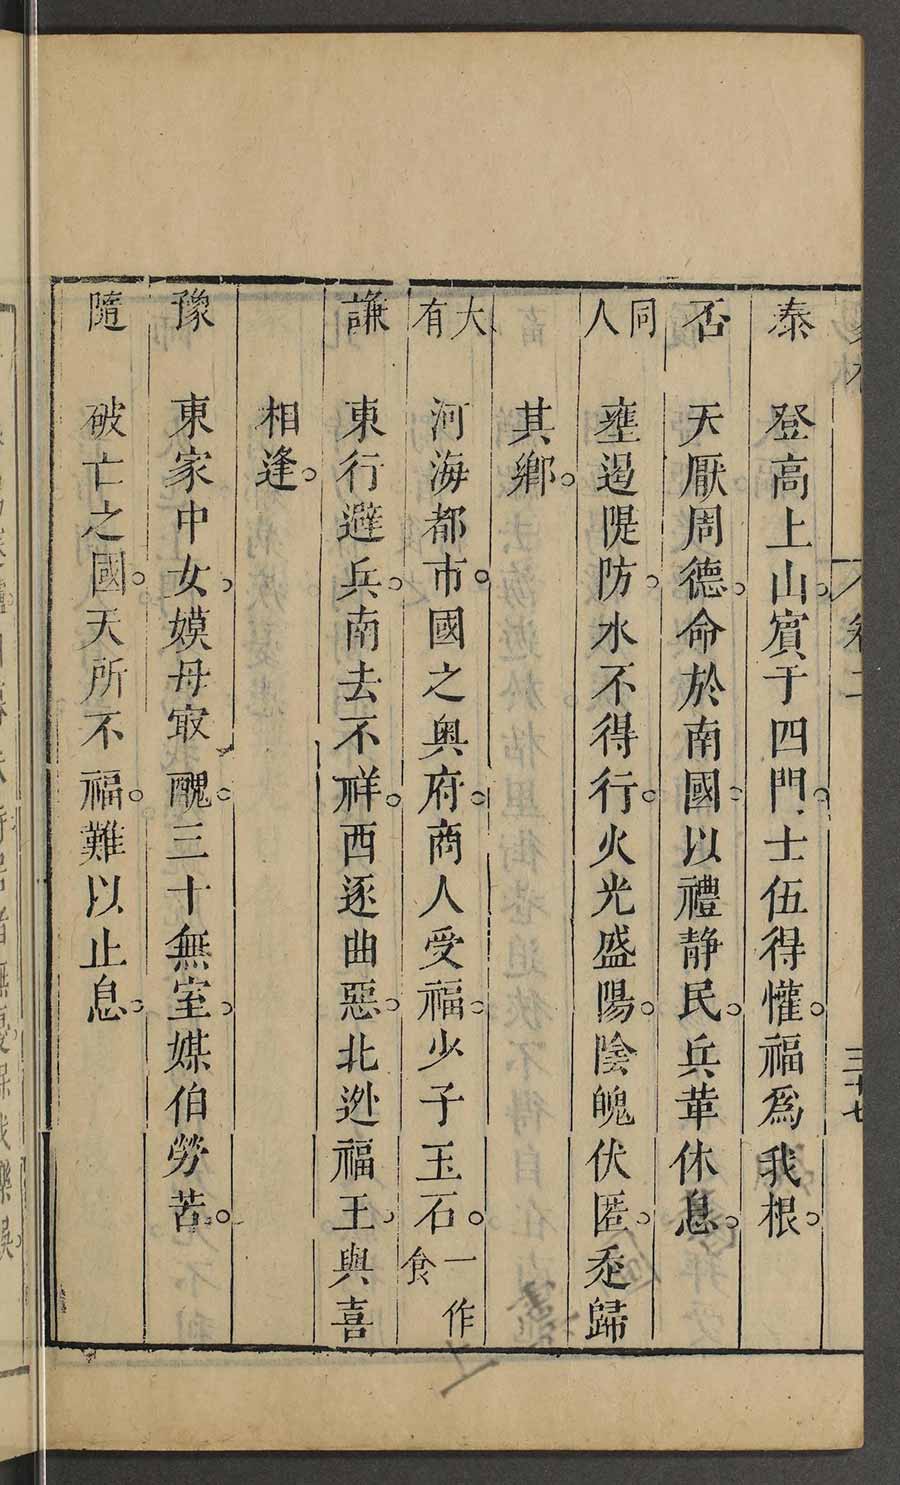 卷二
三十七
泰 登高上山。賓于四門。士伍得懽。福爲我根。
否 天厭周德。命於南國。以禮静民。兵革休息。
同人 壅遏隄防。水不得行。火光盛陽。陰蜺伏匿。歸
其鄉。
大有 河海都市。國之奥府。商人受福。少子玉石。一作食
謙 東行避兵。南去不祥。西逐曲惡。北迯福王。與喜
相逢。
豫 東家中女。嫫母㝡醜。三十無室。媒伯勞苦。
隨 破亡之國。天所不福。難以止息。